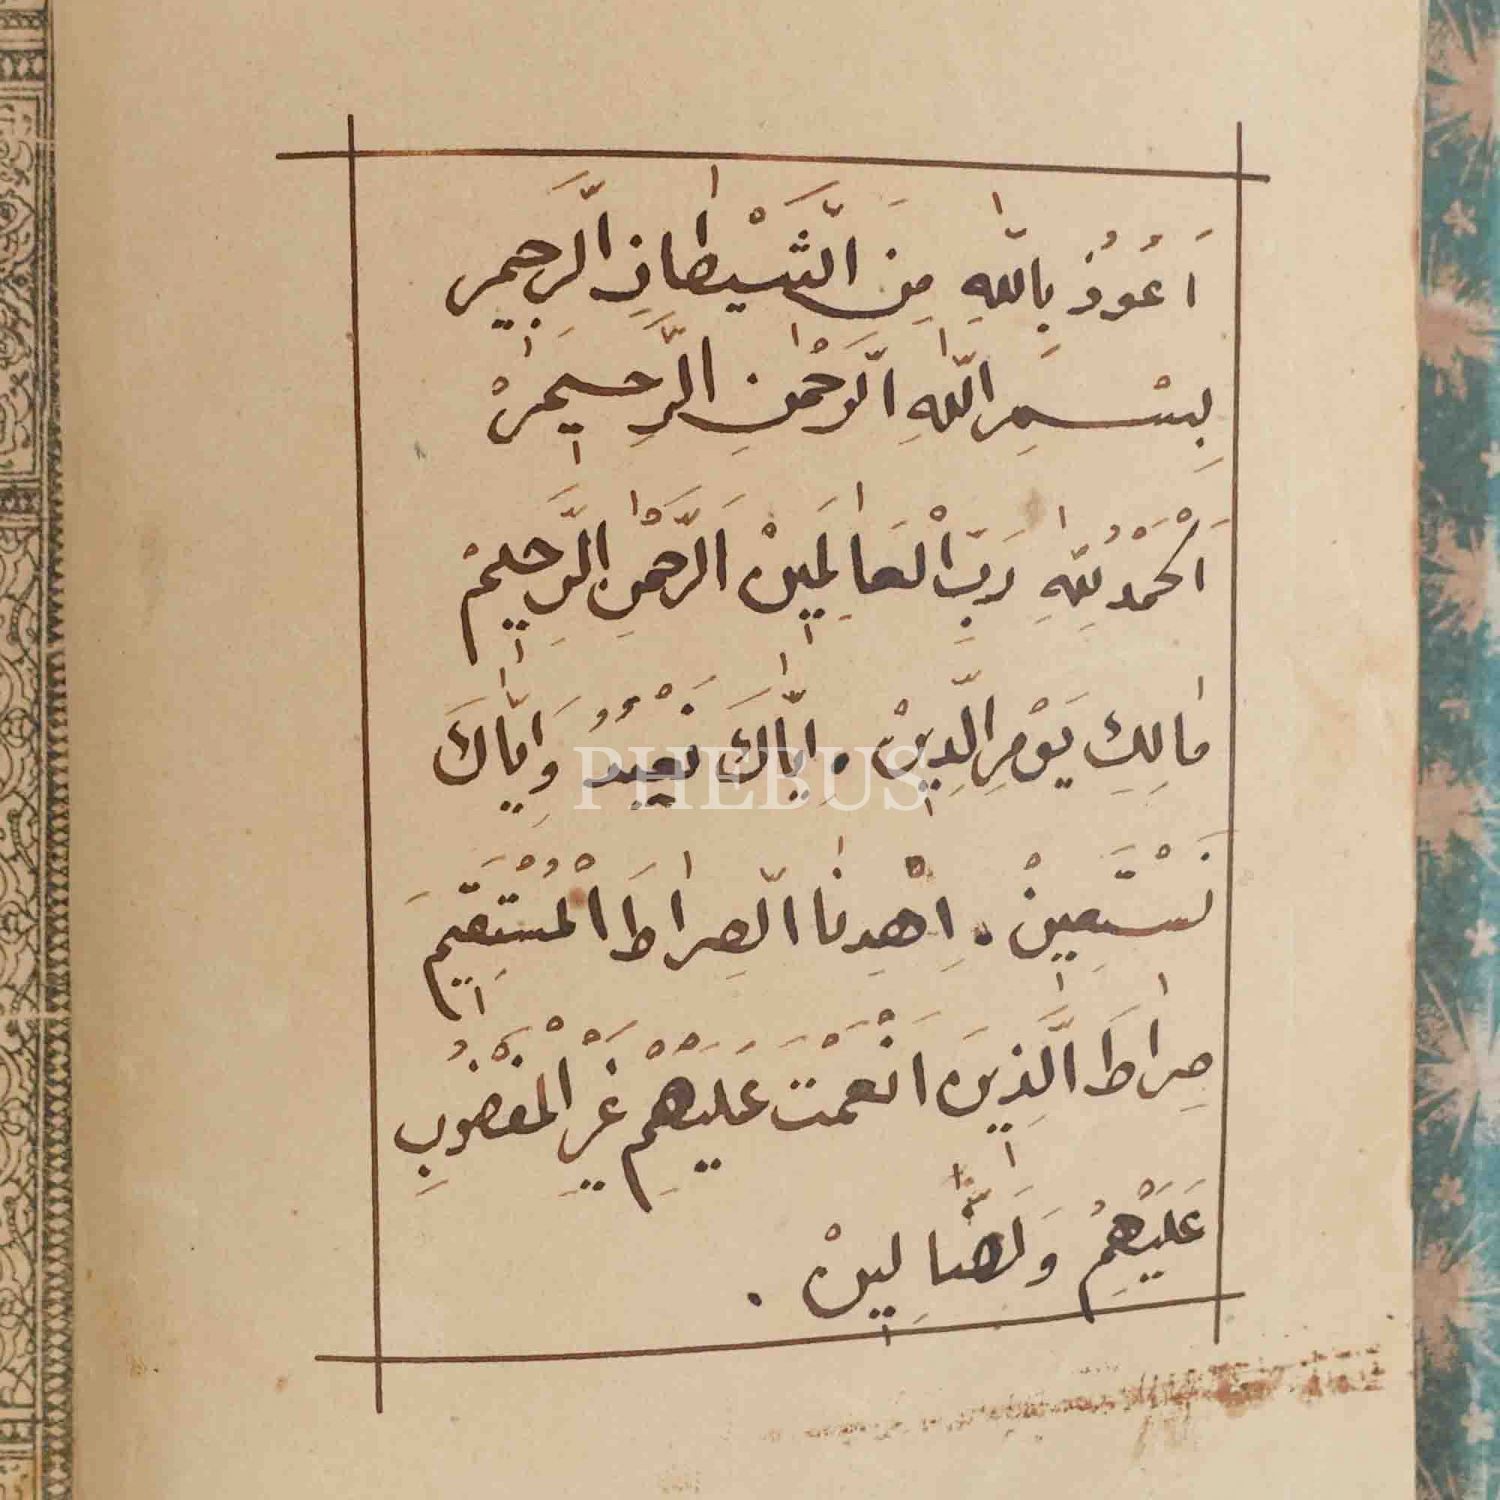 اَعُوذُ بِاللّٰهِ مِنَ الشَّيْطَانِ الرَّجِيمِ
بِسْمِ اللّٰهِ الرَّحْمٰنِ الرَّحِيمْ
اَلْحَمْدُ لِلّٰهِ رَبِّ الْعَالَمِينْ اَلرَّحْمٰنِ الرَّحِيمْ
مَالِكِ يَوْمِ الدِّينْ . اِيَّاكَ نَعْبُدُ وَاِيَّاكَ
PHEBUS
نَسْتَعِينْ . اِهْدِنَا الصِّرَاطَ الْمُسْتَقِيمَ
صِرَاطَ الَّذِينَ اَنْعَمْتَ عَلَيْهِمْ غَيْرِ الْمَغْضُوبِ
عَلَيْهِمْ وَلَضَّالِينْ .